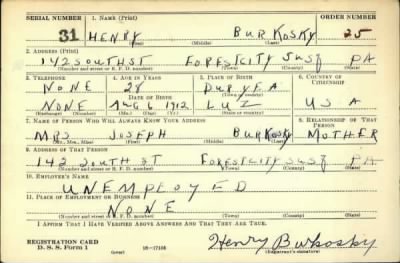 SERIAL NUMBER 1. NAME (Print) ORDER NUMBER
31 HENRY BURKOSKY 25
(First) (Middle) (Last)
2. ADDRESS (Print)
142 SOUTH ST FORESTCITY SUSQ PA
(Number and street or R. F. D. number) (Town) (County) (State)
3. TELEPHONE 4. AGE IN YEARS 5. PLACE OF BIRTH 6. COUNTRY OF CITIZENSHIP
NONE 28 DURYEA
DATE OF BIRTH (Town or county)
NONE AUG 6 1912 LUZ USA
(Exchange) (Number) (Mo.) (Day) (Yr.) (State or country)
7. NAME OF PERSON WHO WILL ALWAYS KNOW YOUR ADDRESS 8. RELATIONSHIP OF THAT PERSON
MRS JOSEPH BURKOSKY MOTHER
(Mr., Mrs., Miss) (First) (Middle) (Last)
9. ADDRESS OF THAT PERSON
142 SOUTH ST FORESTCITY SUSQ PA
(Number and street or R. F. D. number) (Town) (County) (State)
10. EMPLOYER'S NAME
UNEMPLOYED
11. PLACE OF EMPLOYMENT OR BUSINESS
NONE
(Number and street or R. F. D. number) (Town) (County) (State)
I AFFIRM THAT I HAVE VERIFIED ABOVE ANSWERS AND THAT THEY ARE TRUE.
REGISTRATION CARD
D. S. S. Form 1 (over) 16—17105 Henry Burkosky
(Registrant's signature)